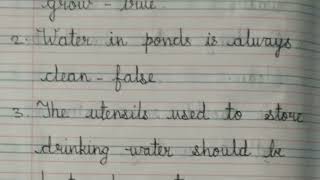 grow - true.
2. Water in ponds is always
clean - false
3. The utensils used to store
drinking water should be